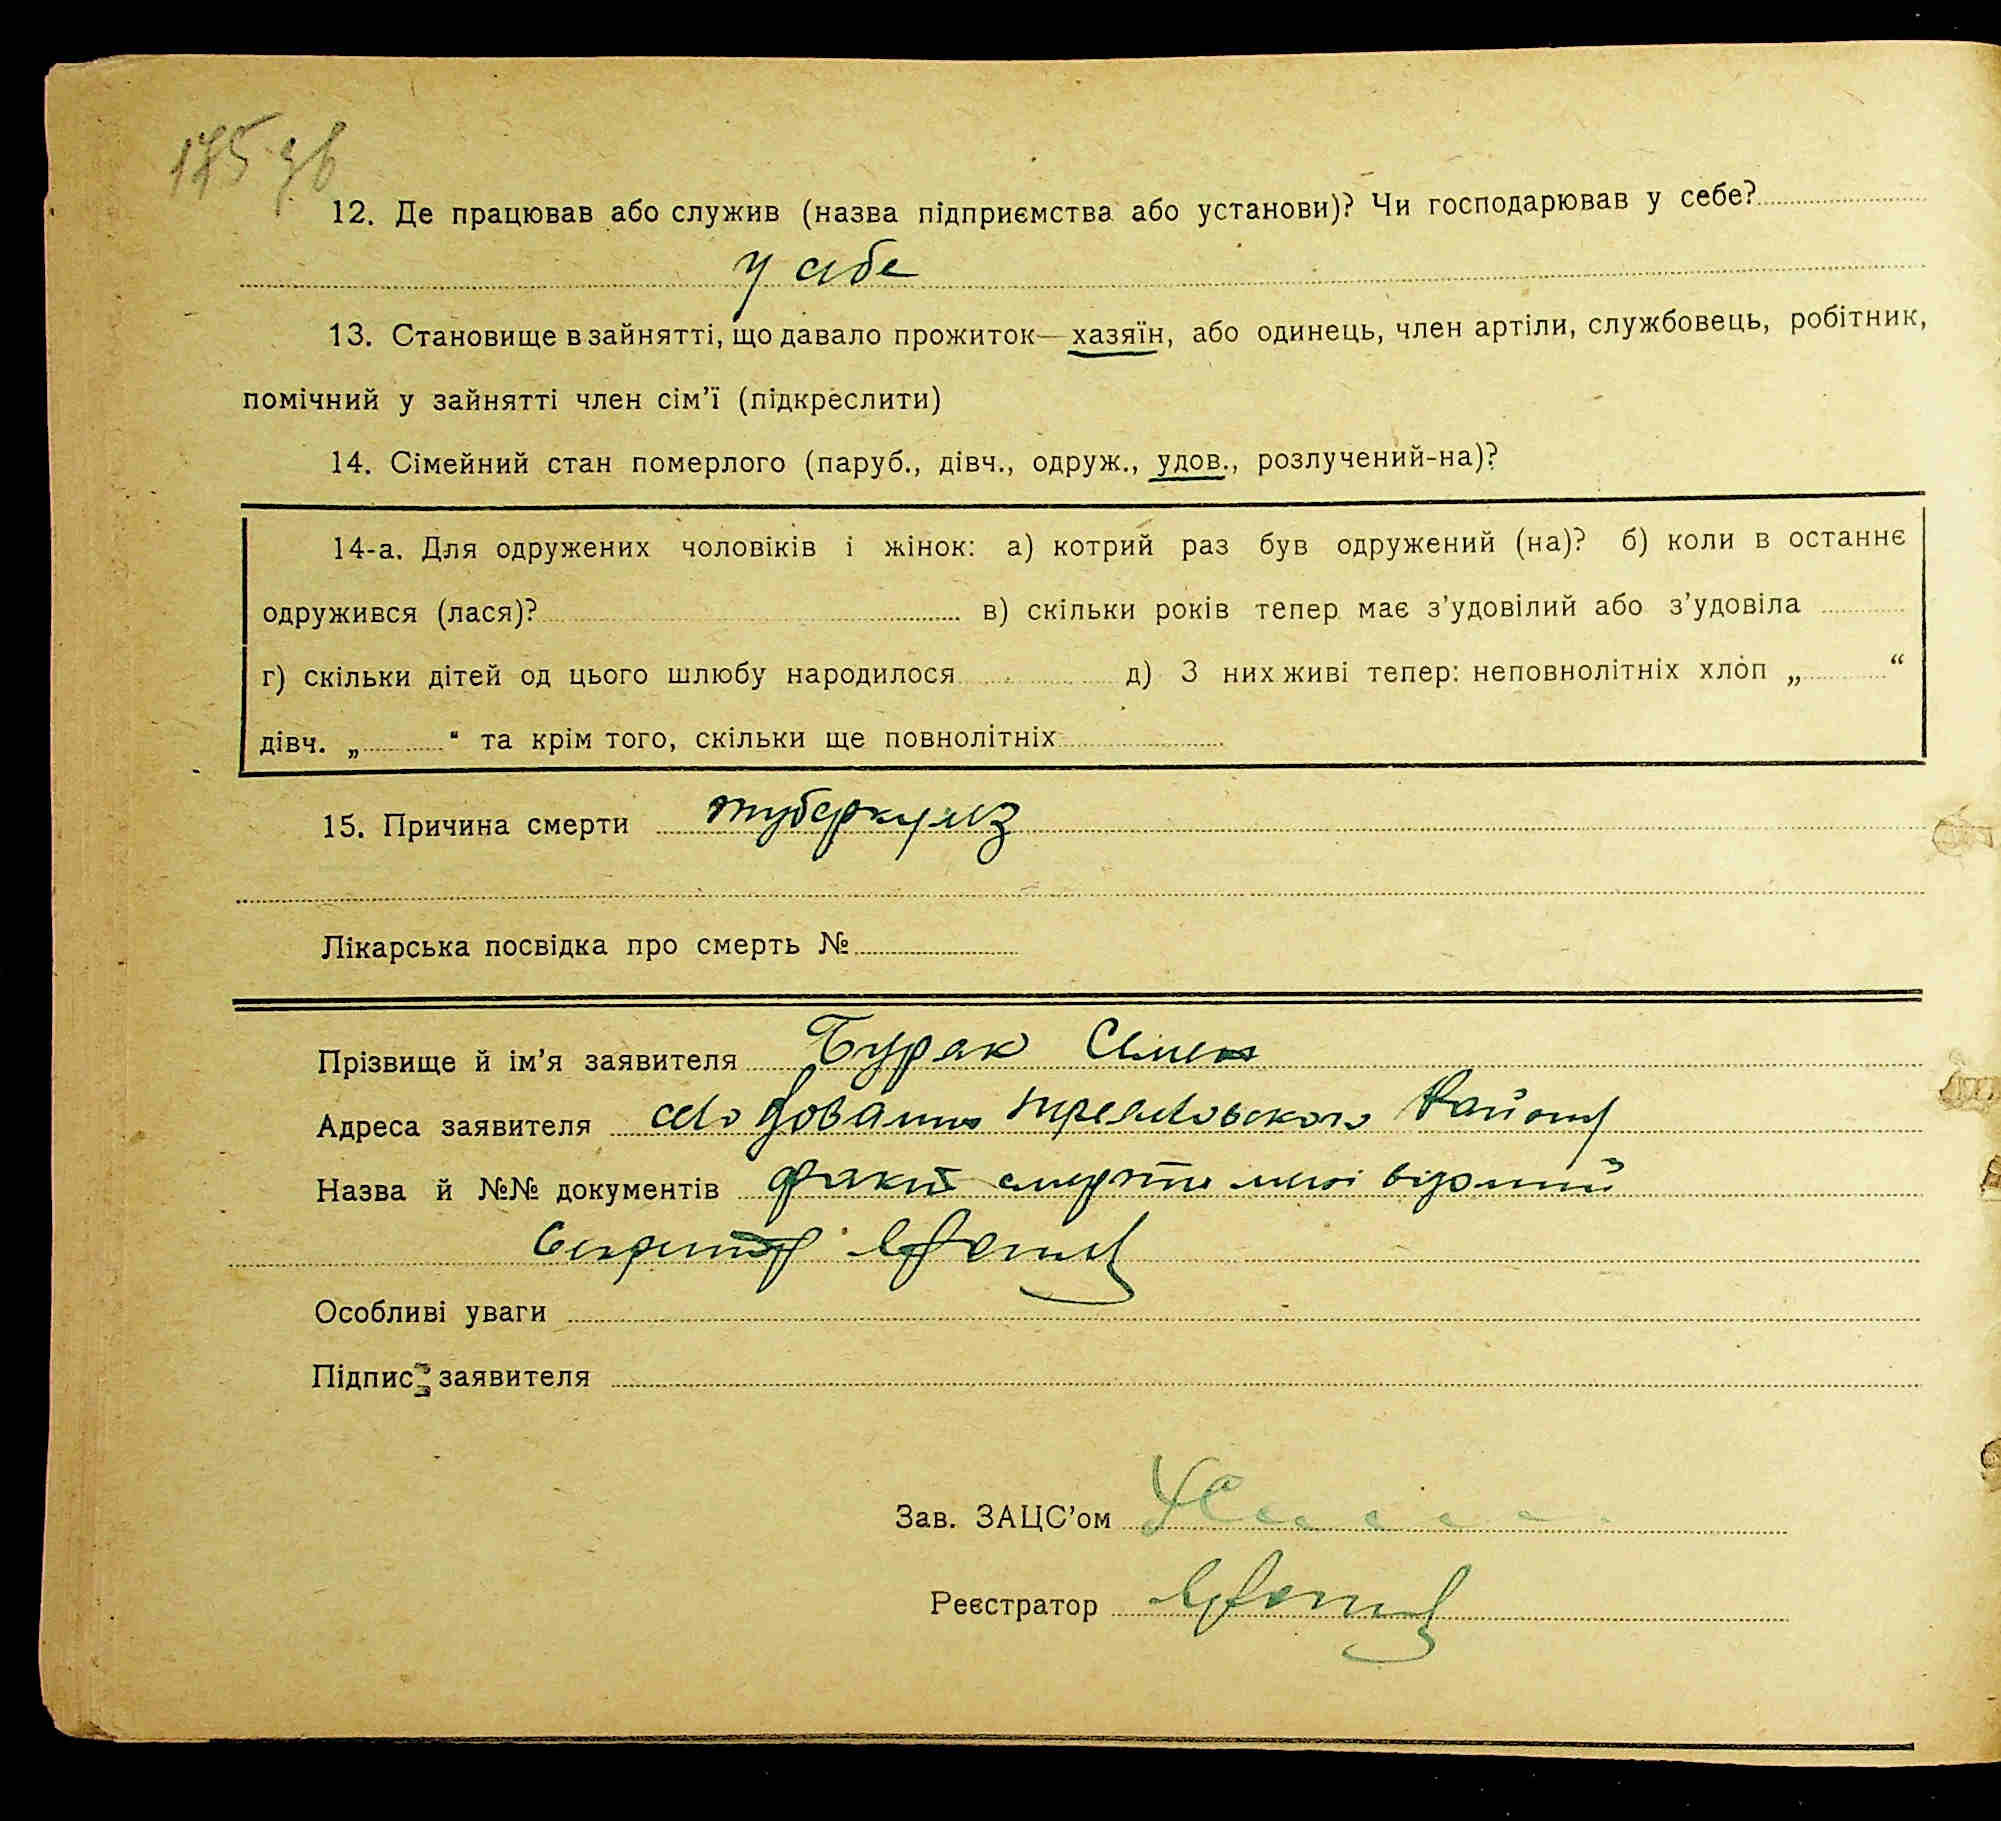 175 зв
12. Де працював або служив (назва підприємства або установи)? Чи господарював у себе?
у себе
13. Становище в зайнятті, що давало прожиток—хазяїн, або одинець, член артіли, службовець, робітник,
помічний у зайнятті член сім'ї (підкреслити)
14. Сімейний стан померлого (паруб., дівч., одруж., удов., розлучений-на)?
14-а. Для одружених чоловіків і жінок: а) котрий раз був одружений (на)? б) коли в останнє
одружився (лася)? в) скільки років тепер має з'удовілий або з'удовіла
г) скільки дітей од цього шлюбу народилося д) З них живі тепер: неповнолітніх хлоп „ “
дівч. „ “ та крім того, скільки ще повнолітніх
15. Причина смерти туберкулз
Лікарська посвідка про смерть №
Прізвище й ім'я заявителя Бурак Семен
Адреса заявителя село району
Назва й №№ документів факт смерти мені відомий
Секретар
Особливі уваги
Підпис заявителя
Зав. ЗАЦС'ом
Реєстратор